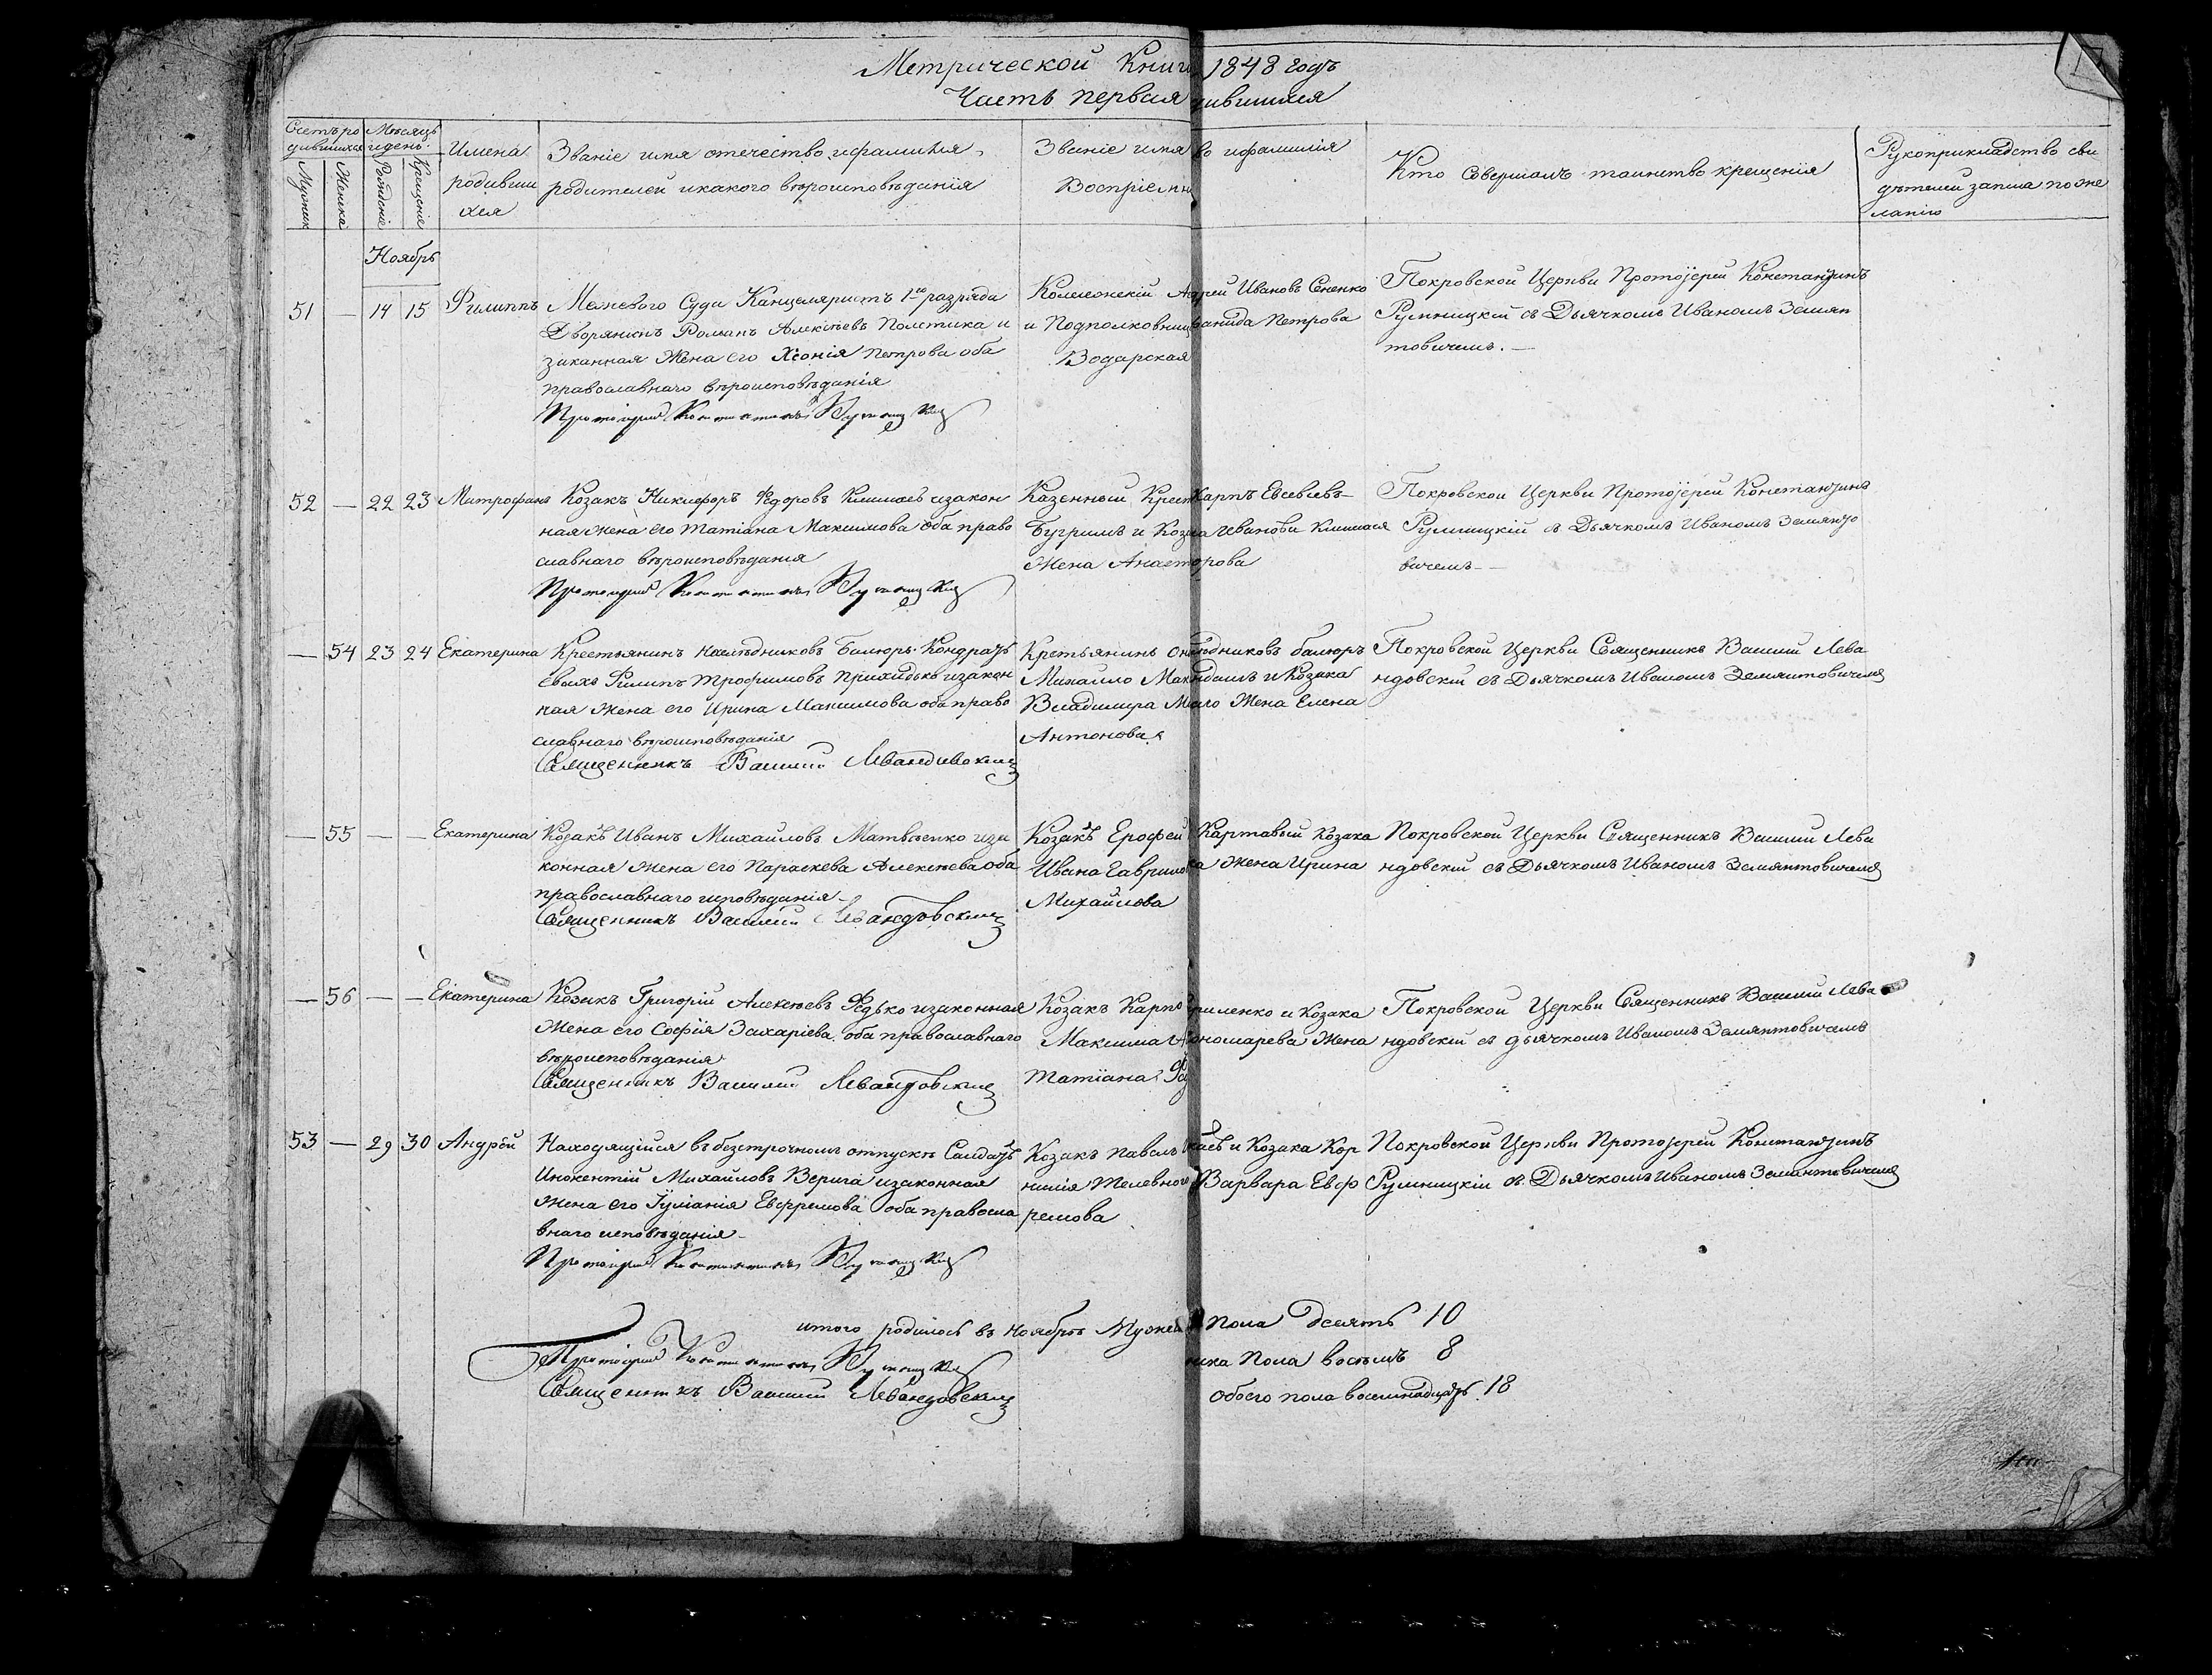 Метрической Книги 1848 годъ
Часть первая родившихся
Счетъ ро дившихся
Мужеска
Женска
Мѣсяцъ и день
Рожденіе
Крещеніе
Имена родивши хся
Званіе имя отечество и фамилія
родителей и какого вѣроисповѣданія
Званіе имя во и фамилія
Воспріемн
Кто совершалъ таинство крещенія
Рукоприкладство сви
дѣтелей записи по же
ланію
Ноябрь
51 — 14 15 Филиппъ
Межевого Суда Канцеляристъ 1го разряда
Дворянинъ Романъ Алексѣевъ Полетика и
законная Жена его Ксенія Петрова оба
православнаго вѣроисповѣданія
Протоіерей Константинъ
Колежскій А дрей Ивановъ Сененко
и Подполковниц Петрова
Водарская
Покровской Церкви Протоіерей Константинъ
съ Дьячкомъ Иваномъ Земян
товичемъ. —
52 — 22 23 Митрофанъ
Козакъ Никифоръ Федоровъ и закон
ная жена его Татіана Максимова оба право
славнаго вѣроисповѣданія
Протоіерей Константинъ
Казенный Крест Карпъ Евсевіевъ
Бугримъ и Коз Иванова
Жена Анаст
Покровской Церкви Протоіерей Константинъ
съ Дьячкомъ Иваномъ Земянто
вичемъ —
— 54 23 24 Екатерина
Крестьянинъ наслѣдниковъ Кондрать
евыхъ Филипъ Трофимовъ Приходько и закон
ная жена его Ирина Максимова оба право
славнаго вѣроисповѣданія
Священникъ Василій Левандовскій
Михайло и Козака
Владимира Жена Елена
Антонова
Покровской Церкви Священникъ Василій Лева
ндовскій съ Дьячкомъ Иваномъ Земянтовичемъ
— 55 — — Екатерина
Козакъ Иванъ Михаиловъ Матвѣенко и за
конная жена его Параскева Алексѣева оба
православнаго исповѣданія
Священникъ Василій Левандовскій
Козакъ Ерофей Картавый Козака
Ивана Гаврило ка жена Ирина
Михайлова
Покровской Церкви Священникъ Василій Лева
ндовскій съ Дьячкомъ Иваномъ Земянтовичемъ
— 56 — — Екатерина
Козакъ Григорій Алексѣевъ Федько и законная
Жена его Софія Захаріева оба православнаго
вѣроисповѣданія
Священникъ Василій Левандовскій
Козакъ Карпъ риленко и Козака
Максима ономарева Жена
Татіана
Покровской Церкви Священникъ Василій Лева
ндовскій съ дьячкомъ Иваномъ Земянтовичемъ
53 — 29 30 Андрей
Находящійся въ безсрочномъ отпускѣ Салдатъ
Инокентій Михайловъ Верига и законная
Жена его Іуліанія Евфремова оба правосла
внаго исповѣданія
Протоіерей Константинъ
Козакъ Павелъ и Козака Кор
нилія Варвара Евф
ремова
Покровской Церкви Протоіерей Константинъ
съ Дьячкомъ Иваномъ Земантовичемъ
итого родилось въ Ноябрѣ Мужеск Пола Десять 10
нска Пола восемь 8
обоего пола восемнадцать 18
Протоіерей Константинъ
Священникъ Василій Левандовскій